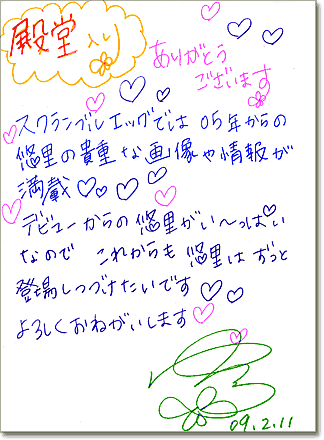 殿堂入り
ありがとう
ございます
スクランブルエッグでは 05年からの
悠里の貴重な画像や情報が
満載
デビューからの悠里がい〜っぱい
なので これからも 悠里は ずっと
登場しつづけたいです
よろしくおねがいします
09.2.11